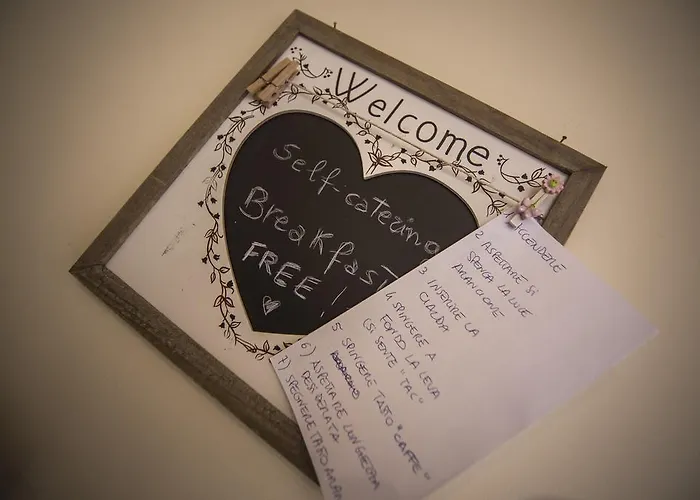 Welcome
Self-catering
Breakfast
FREE!
1 ACCENDERE
2 ASPETTARE SI
SPENGA LA LUCE
ARANCIONE
3 INSERIRE LA
CIALDA
4 SPINGERE A
FONDO LA LEVA
(SI SENTE "TAC"
5 SPINGERE TASTO "CAFFE"
6) ASPETTARE LUNGHEZZA
DESIDERATA
7) SPEGNERE